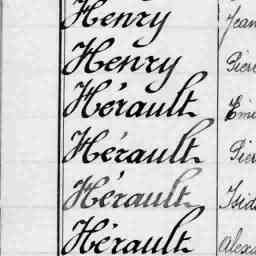 Henry Jean
Henry Pierr
Hérault Emi
Hérault Pier
Hérault Isid
Hérault Alexa